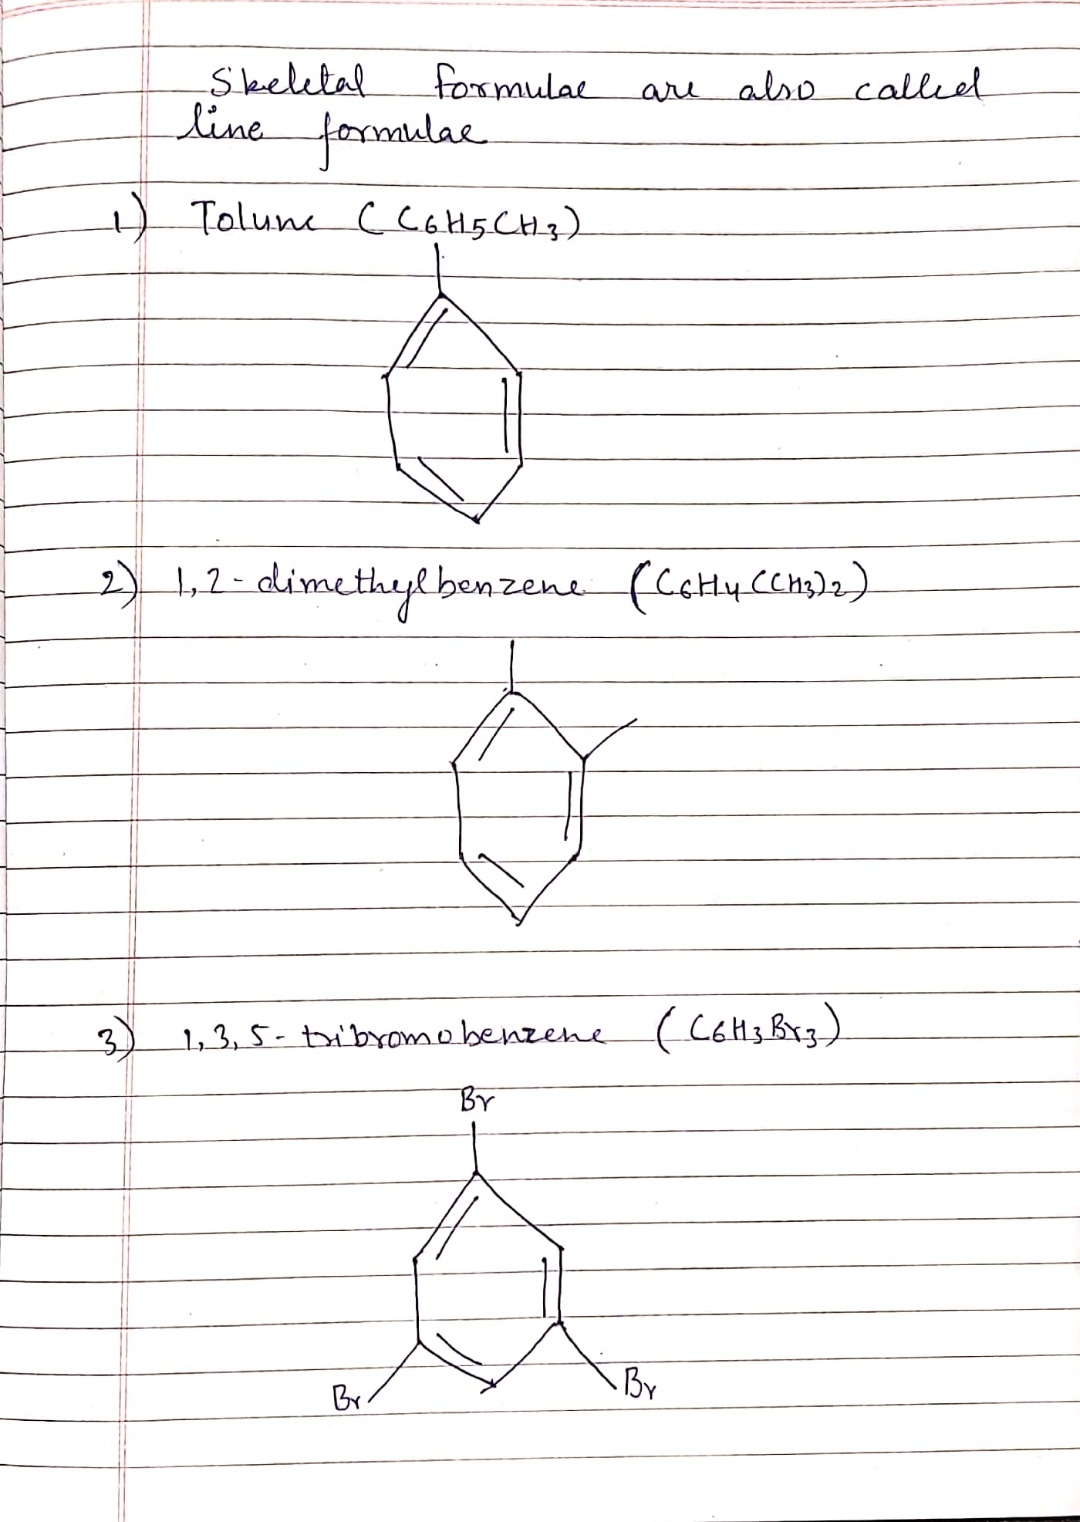 Skeletal formulae are also called
line formulae
1) Tolune (C6H5CH3)
2) 1,2-dimethylbenzene (C6H4(CH3)2)
3) 1,3,5-tribromobenzene (C6H3Br3)
Br
Br
Br